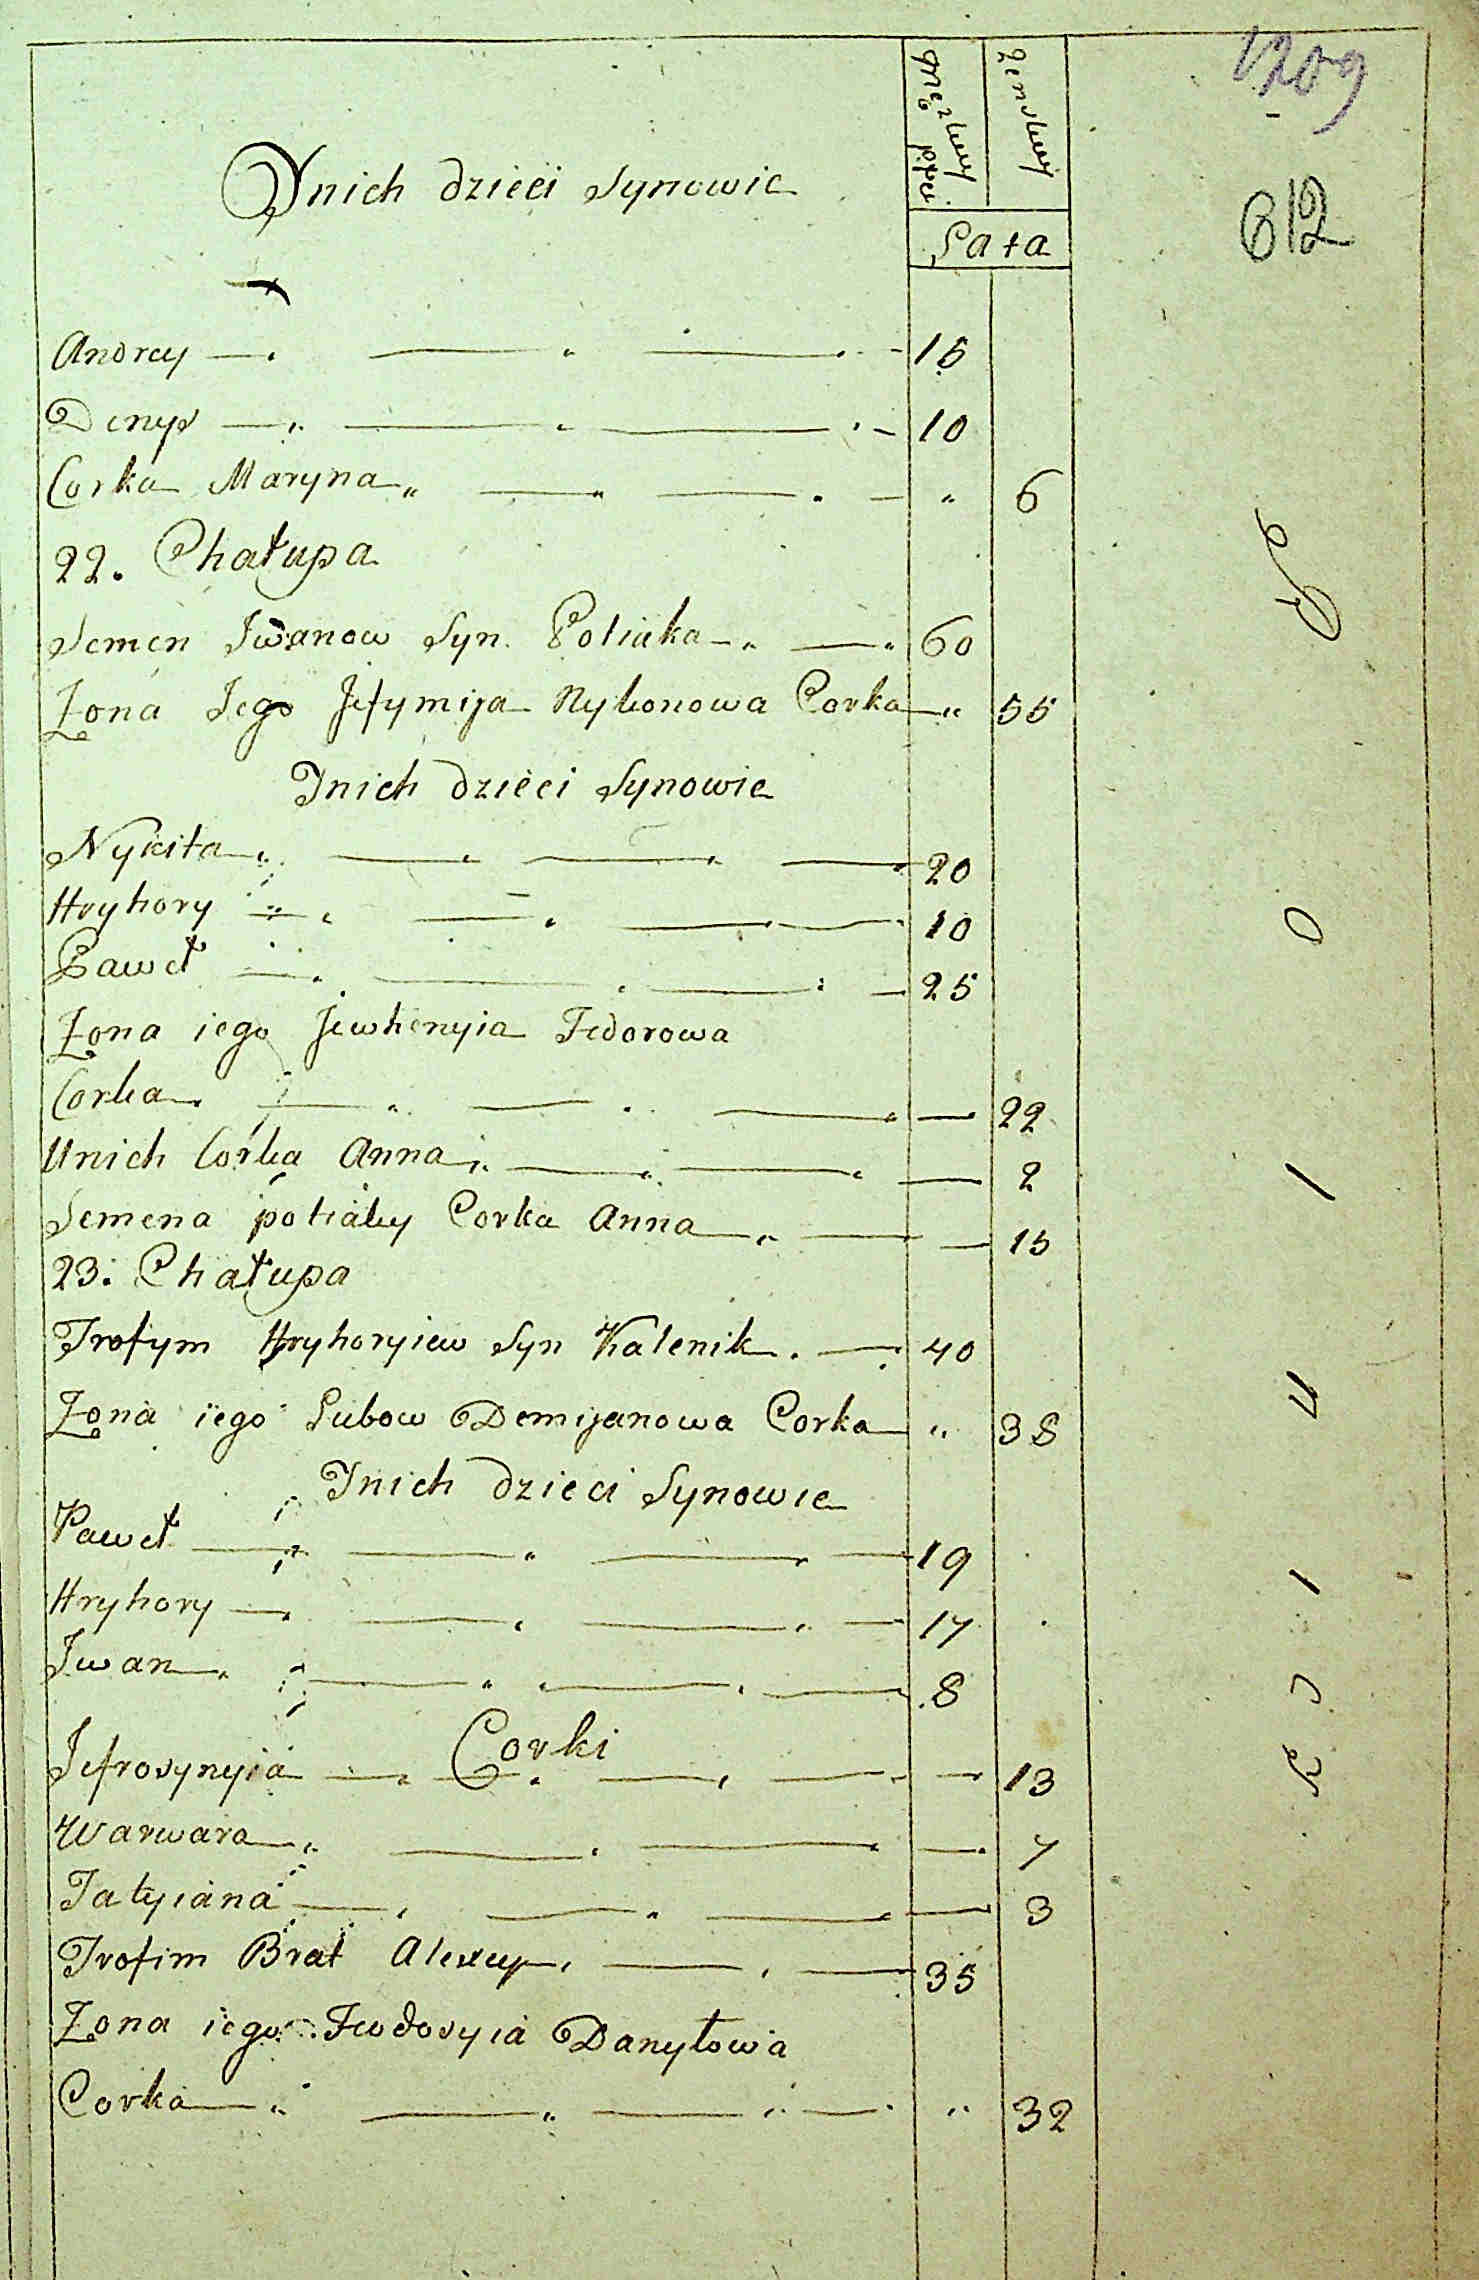 1209
612
Męzkiey płci
żenskiey
Lata
Jnich dzieci Synowie
Andrey 15
Denys 10
Corka Maryna " 6
22. Chałupa
Semen Jwanow Syn Potiaka 60
Zona Jego Jefymija Nykonowa Corka " 55
Jnich dzieci Synowie
Nykita 20
Hryhory 10
Paweł 25
Zona iego Jewhenyia Fedorowa
Corka 22
Unich Corka Anna 2
Semena potiaky Corka Anna 15
23. Chałupa
Trofym Hryhoryiew Syn Kalenik 40
Zona iego Lubow Demijanowa Corka " 38
Jnich dzieci Synowie
Paweł 19
Hryhory 17
Jwan 8
Corki
Jefrosynyia 13
Warwara 7
Tatyiana 3
Trofim Brat Alexey 35
Zona iego Fewdosyia Danyłowa
Corka " 32